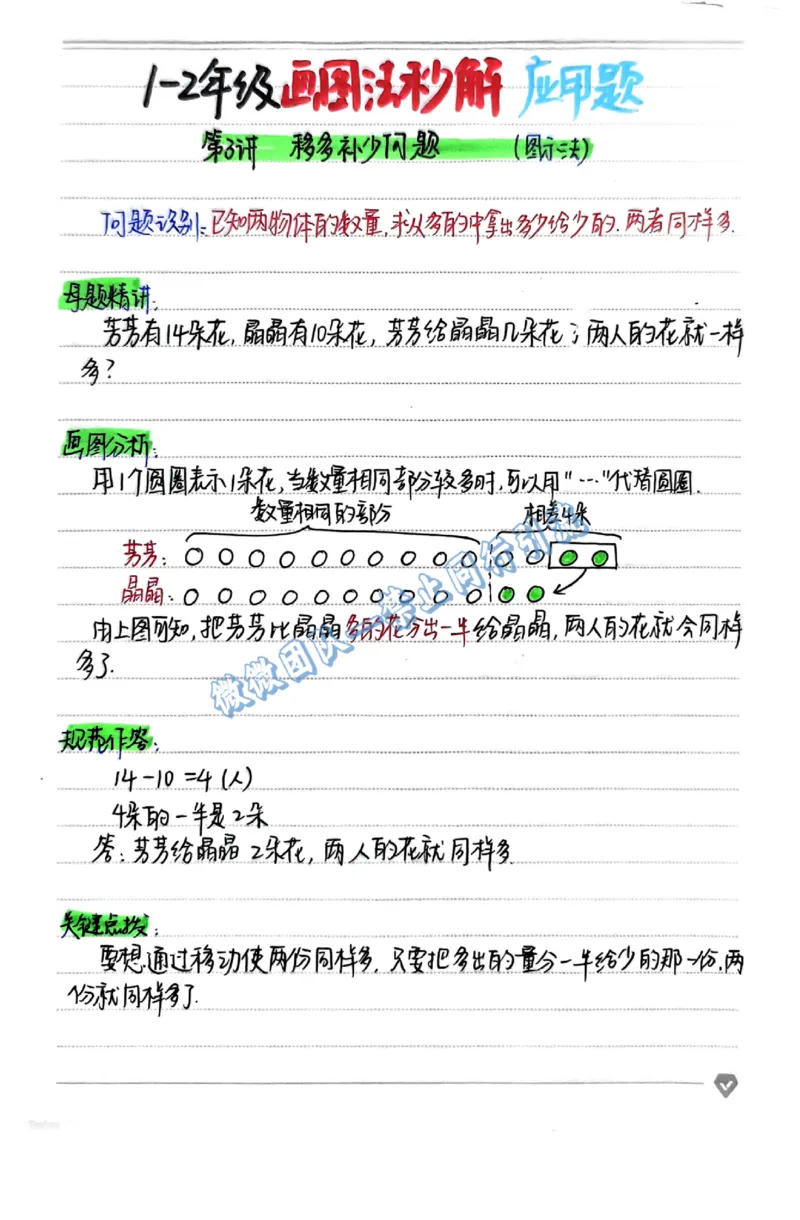 1-2年级画图法秒解 应用题
第3讲 移多补少问题 (图示法)
问题识别:已知两物体的数量,求从多的中拿出多少给少的,两者同样多.
母题精讲:
芳芳有14朵花,晶晶有10朵花,芳芳给晶晶几朵花,两人的花就一样
多?
画图分析:
用1个圆圈表示1朵花,当数量相同部分较多时,可以用"…"代替圆圈.
数量相同的部分 相差4朵
芳芳:
晶晶:
由上图可知,把芳芳比晶晶多的花分出一半给晶晶,两人的花就会同样
多了.
微微团队—禁止同行引流
规范作答:
14-10=4(人)
4朵的一半是2朵
答:芳芳给晶晶2朵花,两人的花就同样多
关键点拨:
要想通过移动使两份同样多,只要把多出的量分一半给少的那一份,两
份就同样多了.